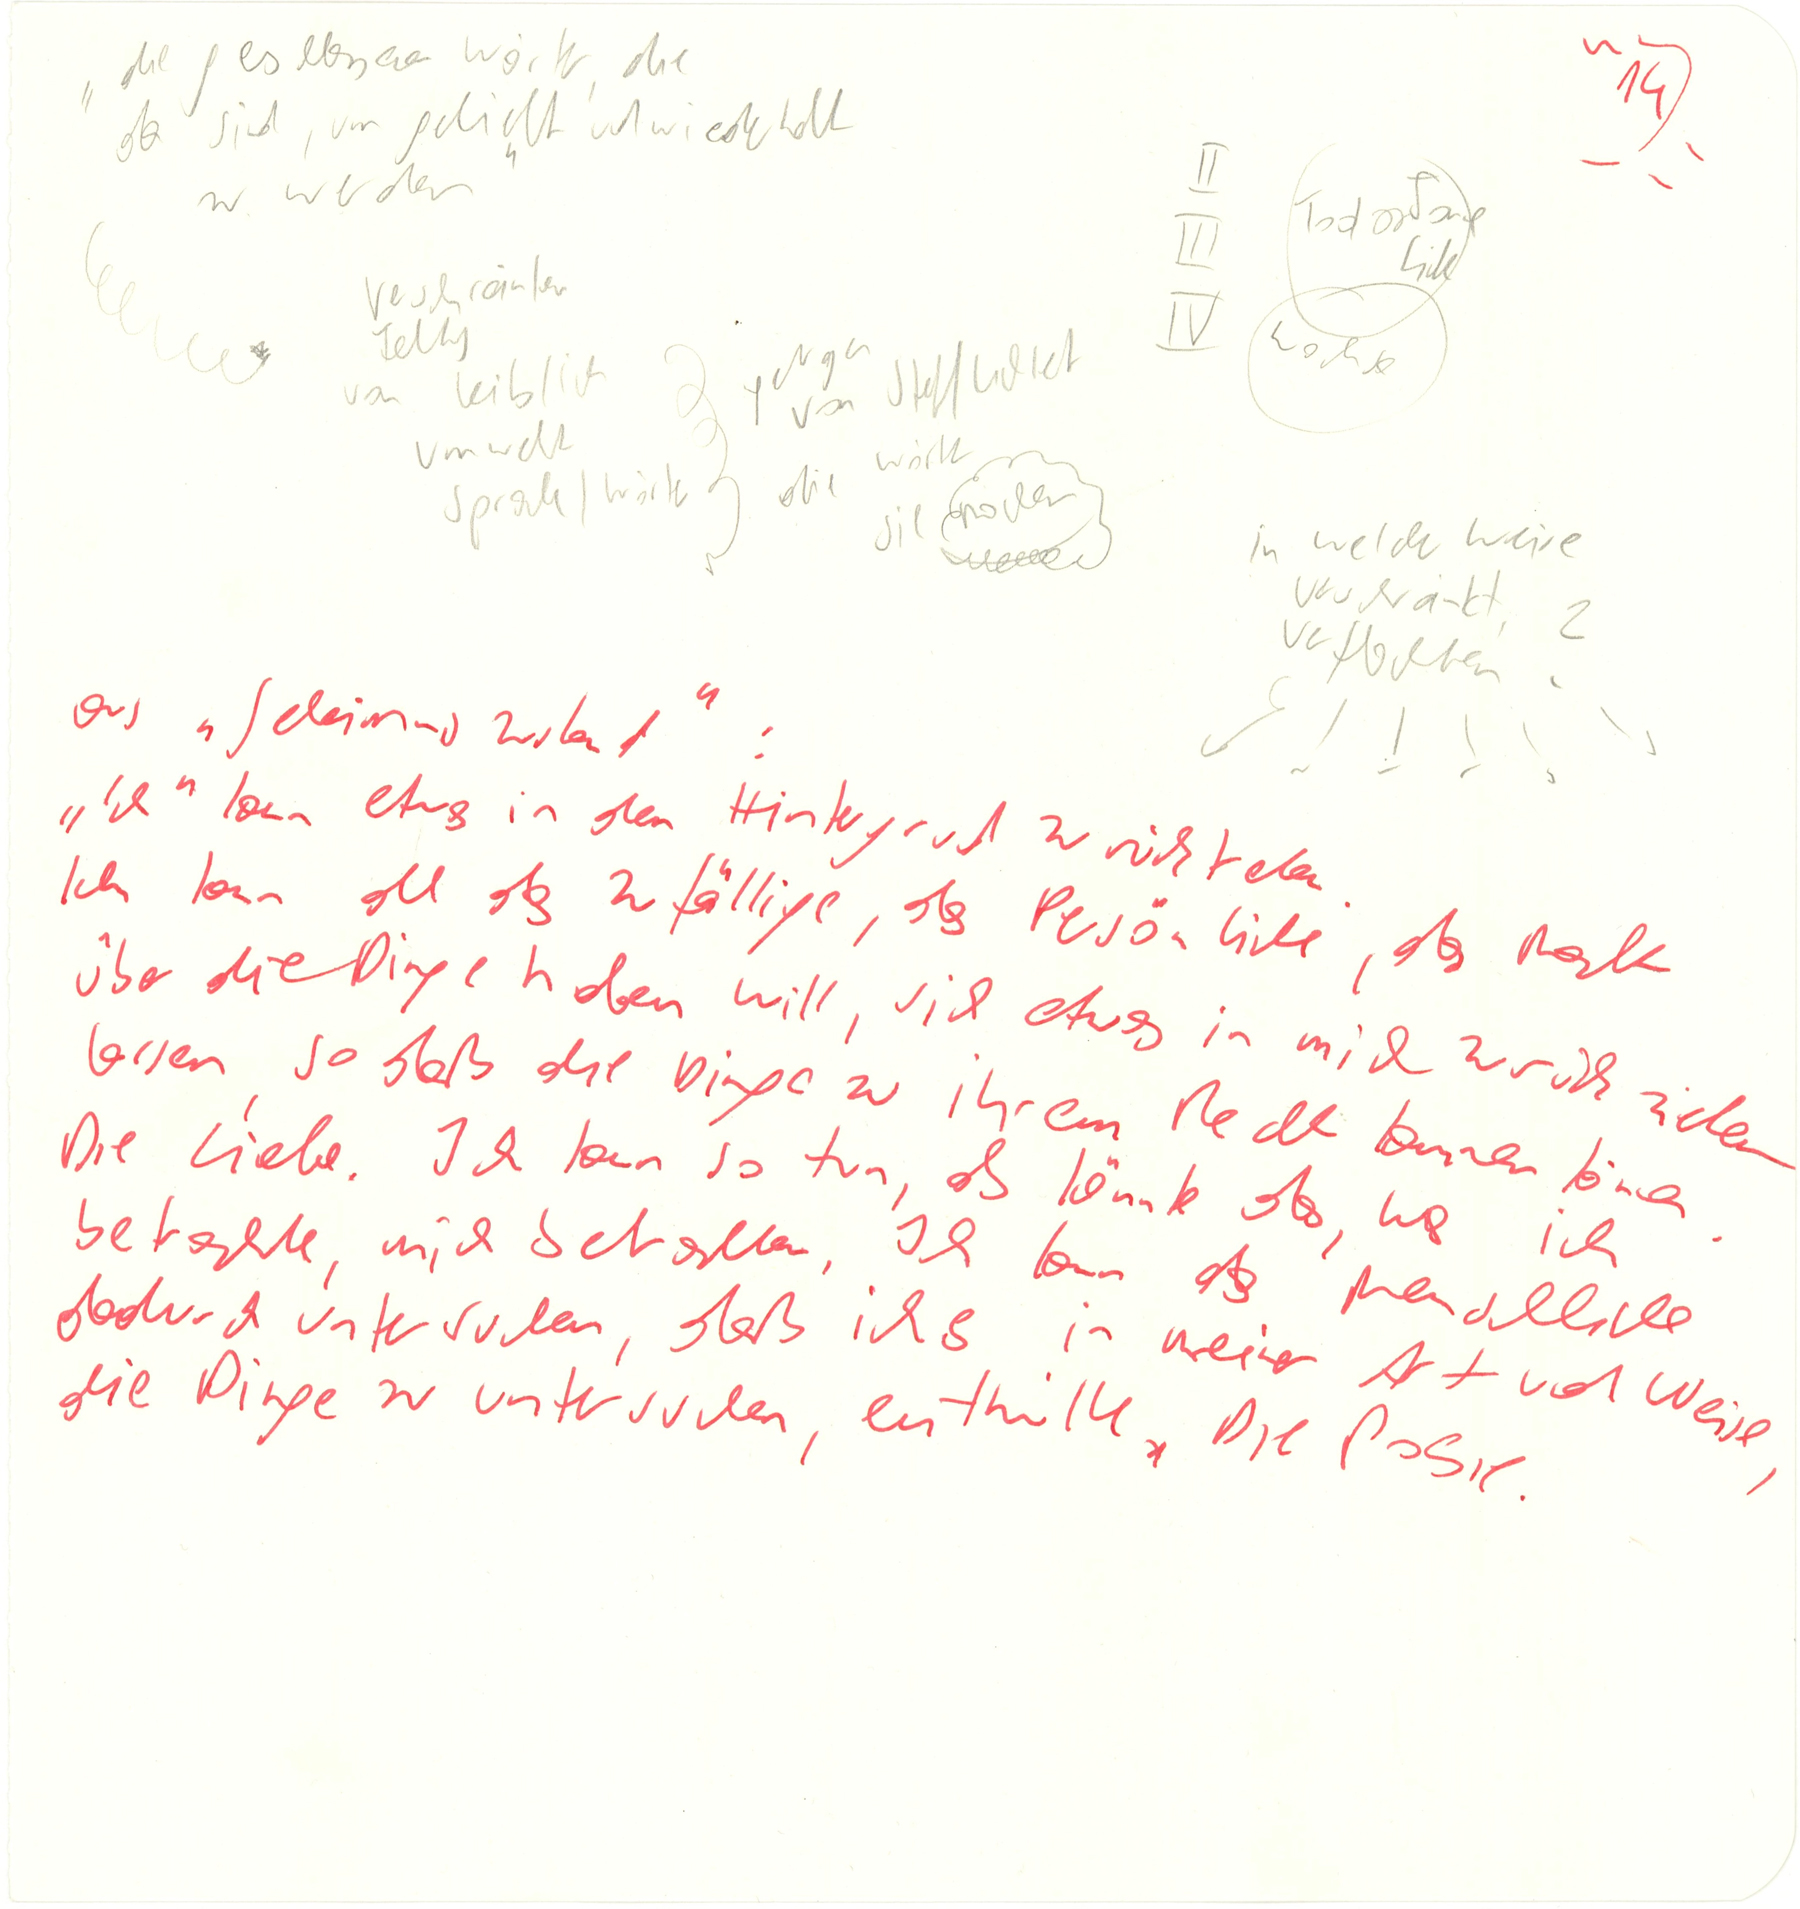 14
„die gelassenen Wörter, die
da sind, um geliebt und wiederholt
zu werden"
II
III
IV
verschränken
von leiblich
Umwelt
Sprache / Wörter
von
die Wörter
sie
in welcher Weise
verschränkt,
verflochten ?
aus „Geheimniszustand" :
„Ich" kann etwas in den Hintergrund zurücktreten.
Ich kann all das Zufällige, das Persönliche, das Macht
über die Dinge haben will, sich etwas in mich zurückziehen
lassen, so daß die Dinge zu ihrem Recht kommen können.
Die Liebe. Ich kann so tun, als könnte das, was ich
betrachte, mich betrachten. Ich kann das Menschliche
dadurch untersuchen, daß ich es in meiner Art und Weise,
die Dinge zu untersuchen, enthülle. Die Poesie.